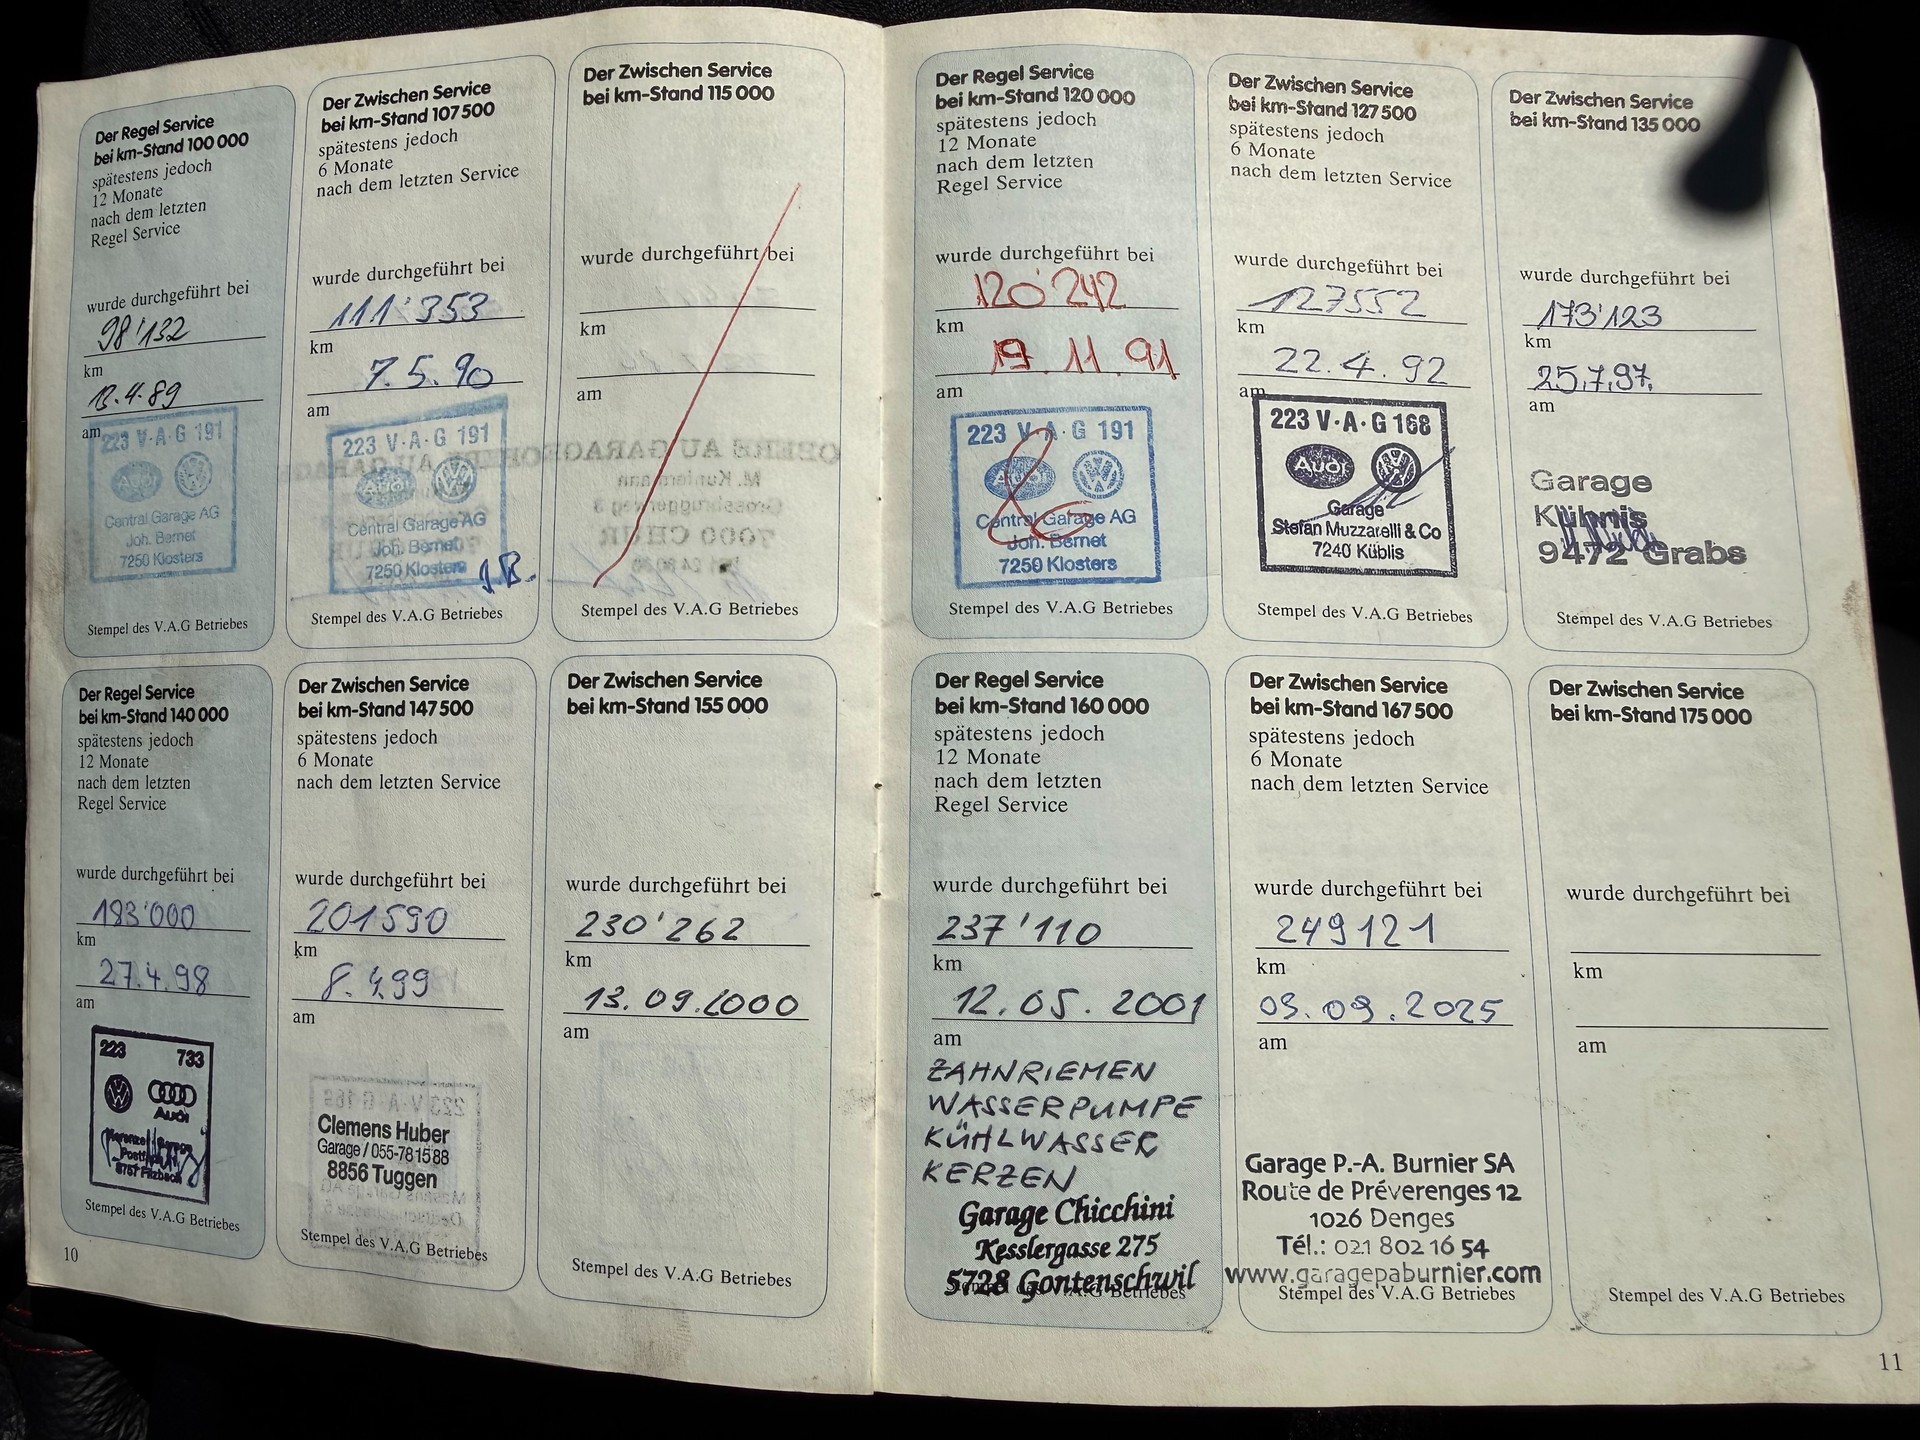 Der Regel Service
bei km-Stand 100 000
spätestens jedoch
12 Monate
nach dem letzten
Regel Service
wurde durchgeführt bei
98'132
km
13.4.89
am
223 V·A·G 191
Audi
Central Garage AG
Joh. Bernet
7250 Klosters
Stempel des V.A.G Betriebes
Der Zwischen Service
bei km-Stand 107 500
spätestens jedoch
6 Monate
nach dem letzten Service
wurde durchgeführt bei
111'353
km
7.5.90
am
223 V·A·G 191
Audi
Central Garage AG
Joh. Bernet
7250 Klosters
J.B.
Stempel des V.A.G Betriebes
Der Zwischen Service
bei km-Stand 115 000
wurde durchgeführt bei
km
am
Stempel des V.A.G Betriebes
Der Regel Service
bei km-Stand 120 000
spätestens jedoch
12 Monate
nach dem letzten
Regel Service
wurde durchgeführt bei
120'242
km
19.11.91
am
223 V·A·G 191
Audi
Central Garage AG
Joh. Bernet
7250 Klosters
Stempel des V.A.G Betriebes
Der Zwischen Service
bei km-Stand 127 500
spätestens jedoch
6 Monate
nach dem letzten Service
wurde durchgeführt bei
127552
km
22.4.92
am
223 V·A·G 168
Audi
Garage
Stefan Muzzarelli & Co
7240 Küblis
Stempel des V.A.G Betriebes
Der Zwischen Service
bei km-Stand 135 000
wurde durchgeführt bei
173'123
km
25.7.97.
am
Garage
Kühnis
9472 Grabs
Stempel des V.A.G Betriebes
Der Regel Service
bei km-Stand 140 000
spätestens jedoch
12 Monate
nach dem letzten
Regel Service
wurde durchgeführt bei
183'000
km
27.4.98
am
223 733
Audi
Stempel des V.A.G Betriebes
Der Zwischen Service
bei km-Stand 147 500
spätestens jedoch
6 Monate
nach dem letzten Service
wurde durchgeführt bei
201590
km
8.4.99
am
Clemens Huber
Garage / 055-781588
8856 Tuggen
Stempel des V.A.G Betriebes
Der Zwischen Service
bei km-Stand 155 000
wurde durchgeführt bei
230'262
km
13.09.2000
am
Stempel des V.A.G Betriebes
Der Regel Service
bei km-Stand 160 000
spätestens jedoch
12 Monate
nach dem letzten
Regel Service
wurde durchgeführt bei
237'110
km
12.05.2001
am
ZAHNRIEMEN
WASSERPUMPE
KÜHLWASSER
KERZEN
Garage Chicchini
Kesslergasse 275
5728 Gontenschwil
Stempel des V.A.G Betriebes
Der Zwischen Service
bei km-Stand 167 500
spätestens jedoch
6 Monate
nach dem letzten Service
wurde durchgeführt bei
249121
km
03.09.2025
am
Garage P.-A. Burnier SA
Route de Préverenges 12
1026 Denges
Tél.: 021 802 16 54
www.garagepaburnier.com
Stempel des V.A.G Betriebes
Der Zwischen Service
bei km-Stand 175 000
wurde durchgeführt bei
km
am
Stempel des V.A.G Betriebes
10
11